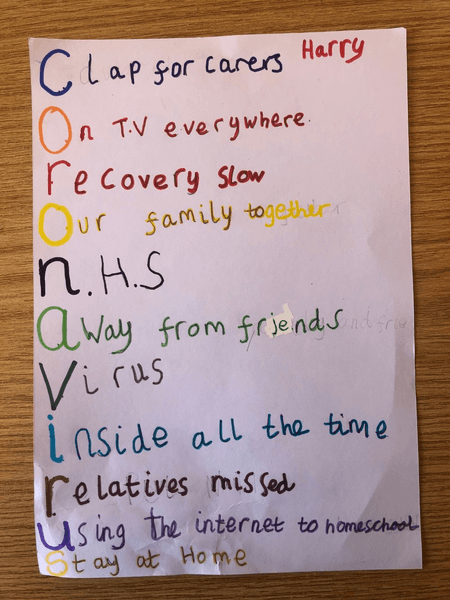 Clap for carers Harry
On T.V everywhere.
recovery slow
Our family together
n.H.S
away from friends
Virus
inside all the time
relatives missed
using the internet to homeschool
stay at Home